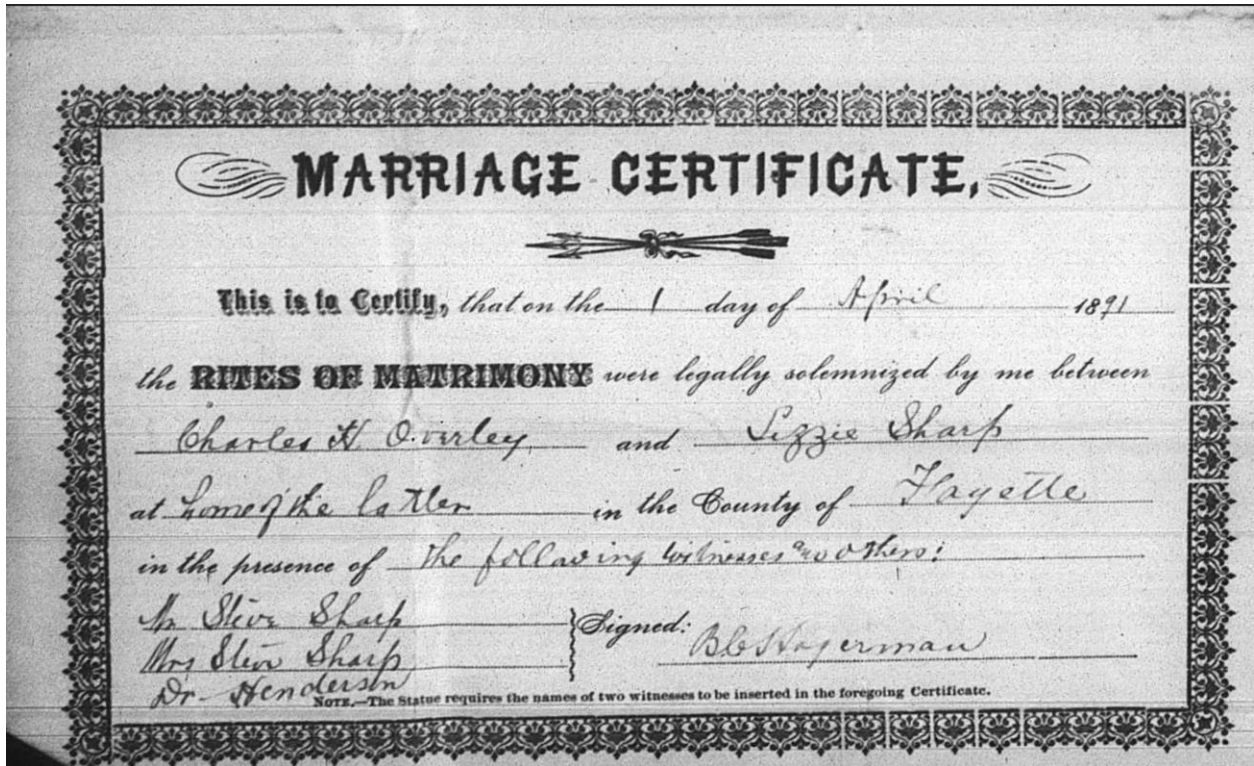 MARRIAGE CERTIFICATE,
This is to Certify, that on the 1 day of April 1891
the RITES OF MATRIMONY were legally solemnized by me between
Charles H Overley and Lizzie Sharp
at home of the latter in the County of Fayette
in the presence of the following witnesses and others:
Mr Steve Sharp
Mrs Steve Sharp
Dr- Henderson
Signed: B C Hagerman
NOTE.—The Statue requires the names of two witnesses to be inserted in the foregoing Certificate.